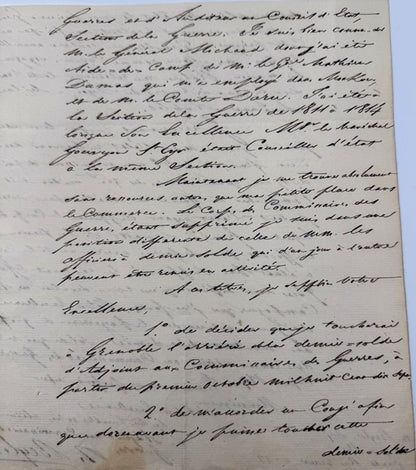 Guerres et d'Auditeur au Conseil d'Etat,
Section de la Guerre. Je suis bien connu de
M. le Général Michaud dont j'ai été
Aide-de-Camp, de M. le Gal Mathieu
Dumas qui m'a employé dans
et de M. le Comte Daru. J'ai été à
la Section de la Guerre de 1811 à 1814
lorsque Son Excellence Mgr le Maréchal
Gouvion St Cyr était Conseiller d'état
à la même Section.
Maintenant je me trouve absolument
sans ressources autre, que ma petite place dans
le Commerce. Le Corps de Commissaires des
Guerres, étant supprimé je suis dans une
position différente de celle de M.M. les
officiers à demie-solde qui d'un jour à l'autre
peuvent être remis en activité.
A ces titres, je supplie Votre
Excellence,
1.o de décider que je toucherai
à Grenoble l'arriéré de la demie-solde
d'Adjoint aux Commissaires de Guerres, à
partir du premier octobre mil huit cent dix sept.
2.o de m'accorder un Congé afin
que dorénavant je puisse toucher cette
demie-solde